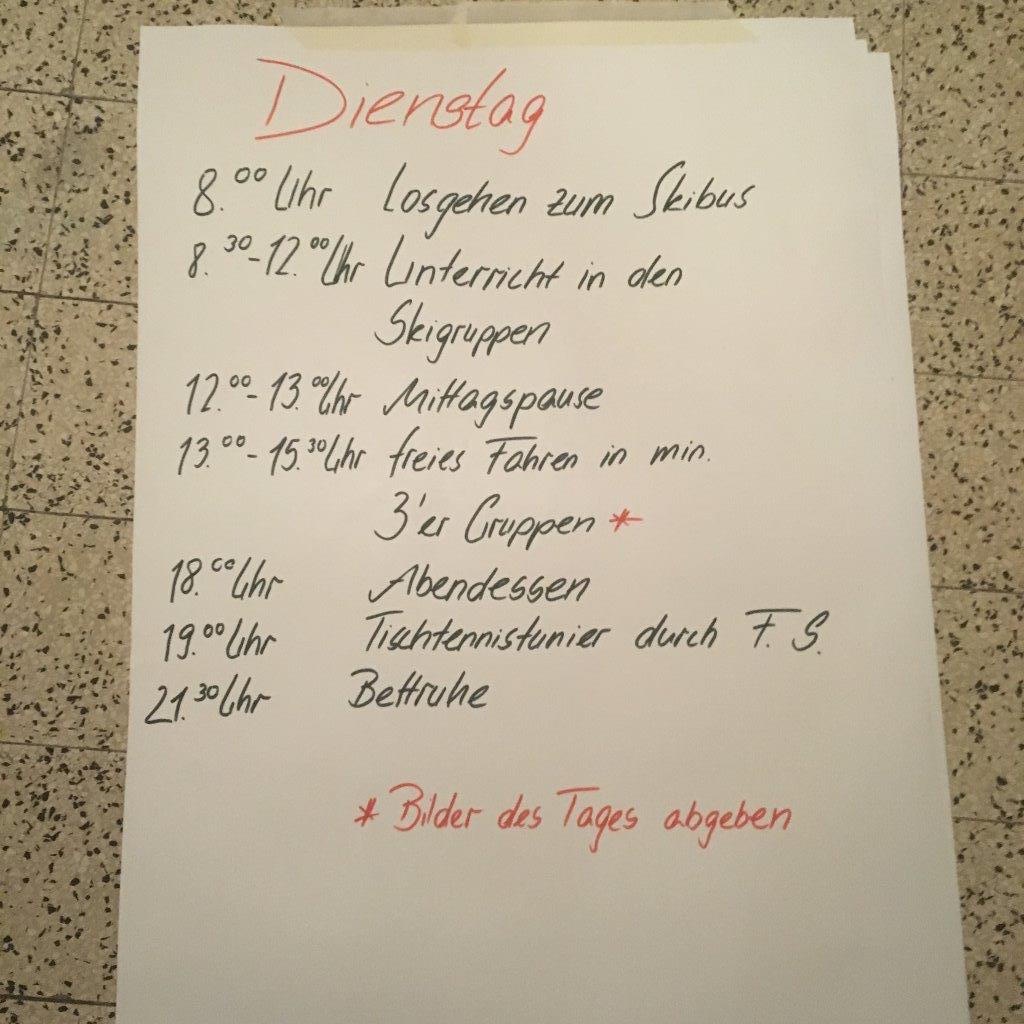 Dienstag
8.00 Uhr Losgehen zum Skibus
8.30-12.00 Uhr Unterricht in den
Skigruppen
12.00-13.00 Uhr Mittagspause
13.00-15.30 Uhr freies Fahren in min.
3'er Gruppen *
18.00 Uhr Abendessen
19.00 Uhr Tischtennistunier durch F.S.
21.30 Uhr Bettruhe
* Bilder des Tages abgeben